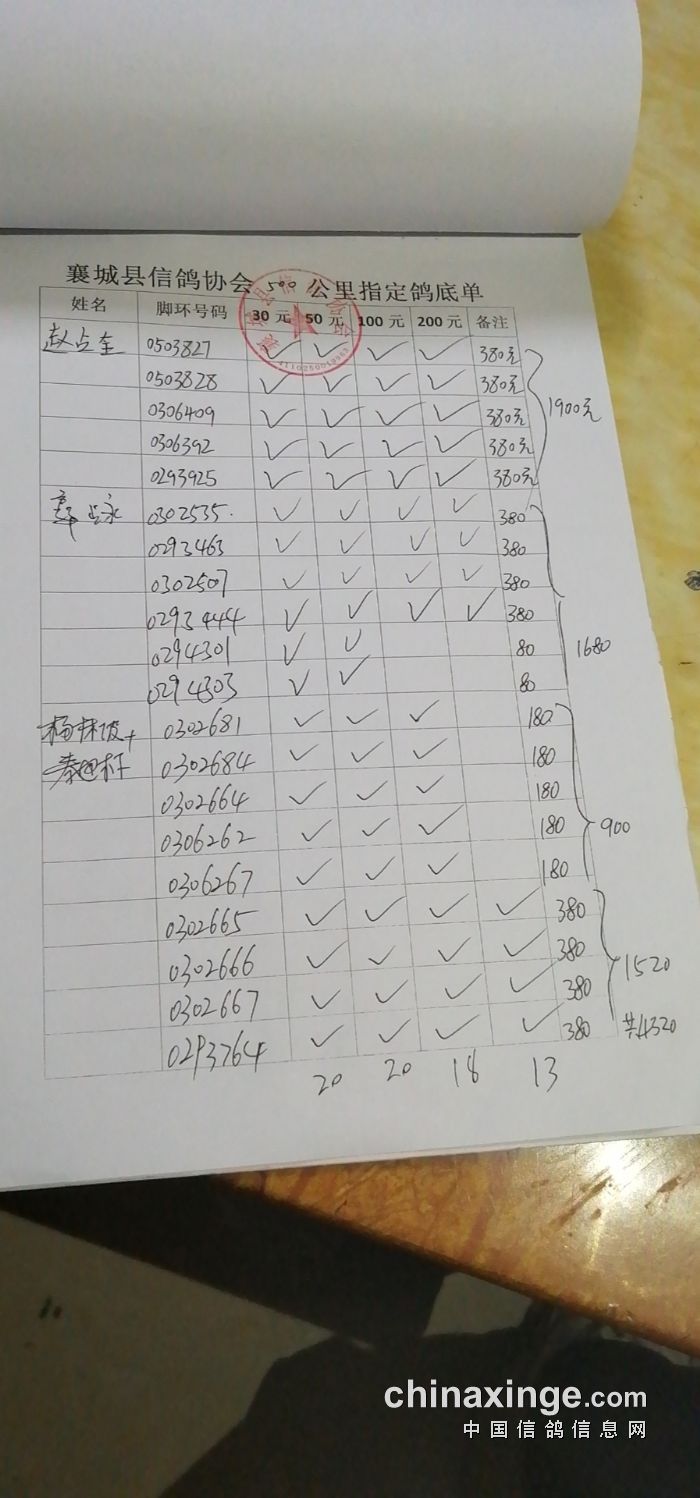 襄城县信鸽协会 500 公里指定鸽底单
姓名 脚环号码 30 元 50 元 100 元 200 元 备注
赵占全 0503827 ✓ ✓ ✓ ✓ 380元
0503828 ✓ ✓ ✓ ✓ 380元
0306409 ✓ ✓ ✓ ✓ 380元 1900元
0306392 ✓ ✓ ✓ ✓ 380元
0293925 ✓ ✓ ✓ ✓ 380元
0302535. ✓ ✓ ✓ ✓ 380
0293463 ✓ ✓ ✓ ✓ 380
0302507 ✓ ✓ ✓ ✓ 380
0293444 ✓ ✓ ✓ ✓ 380
0294301 ✓ ✓ 80 1680
0294303 ✓ ✓ 80
0302681 ✓ ✓ ✓ 180
0302684 ✓ ✓ ✓ 180
0302664 ✓ ✓ ✓ 180
0306262 ✓ ✓ ✓ 180 900
0306267 ✓ ✓ ✓ 180
0302665 ✓ ✓ ✓ ✓ 380
0302666 ✓ ✓ ✓ ✓ 380 1520
0302667 ✓ ✓ ✓ ✓ 380
0293764 ✓ ✓ ✓ ✓ 380 共4320
20 20 18 13
chinaxinge.com
中国信鸽信息网